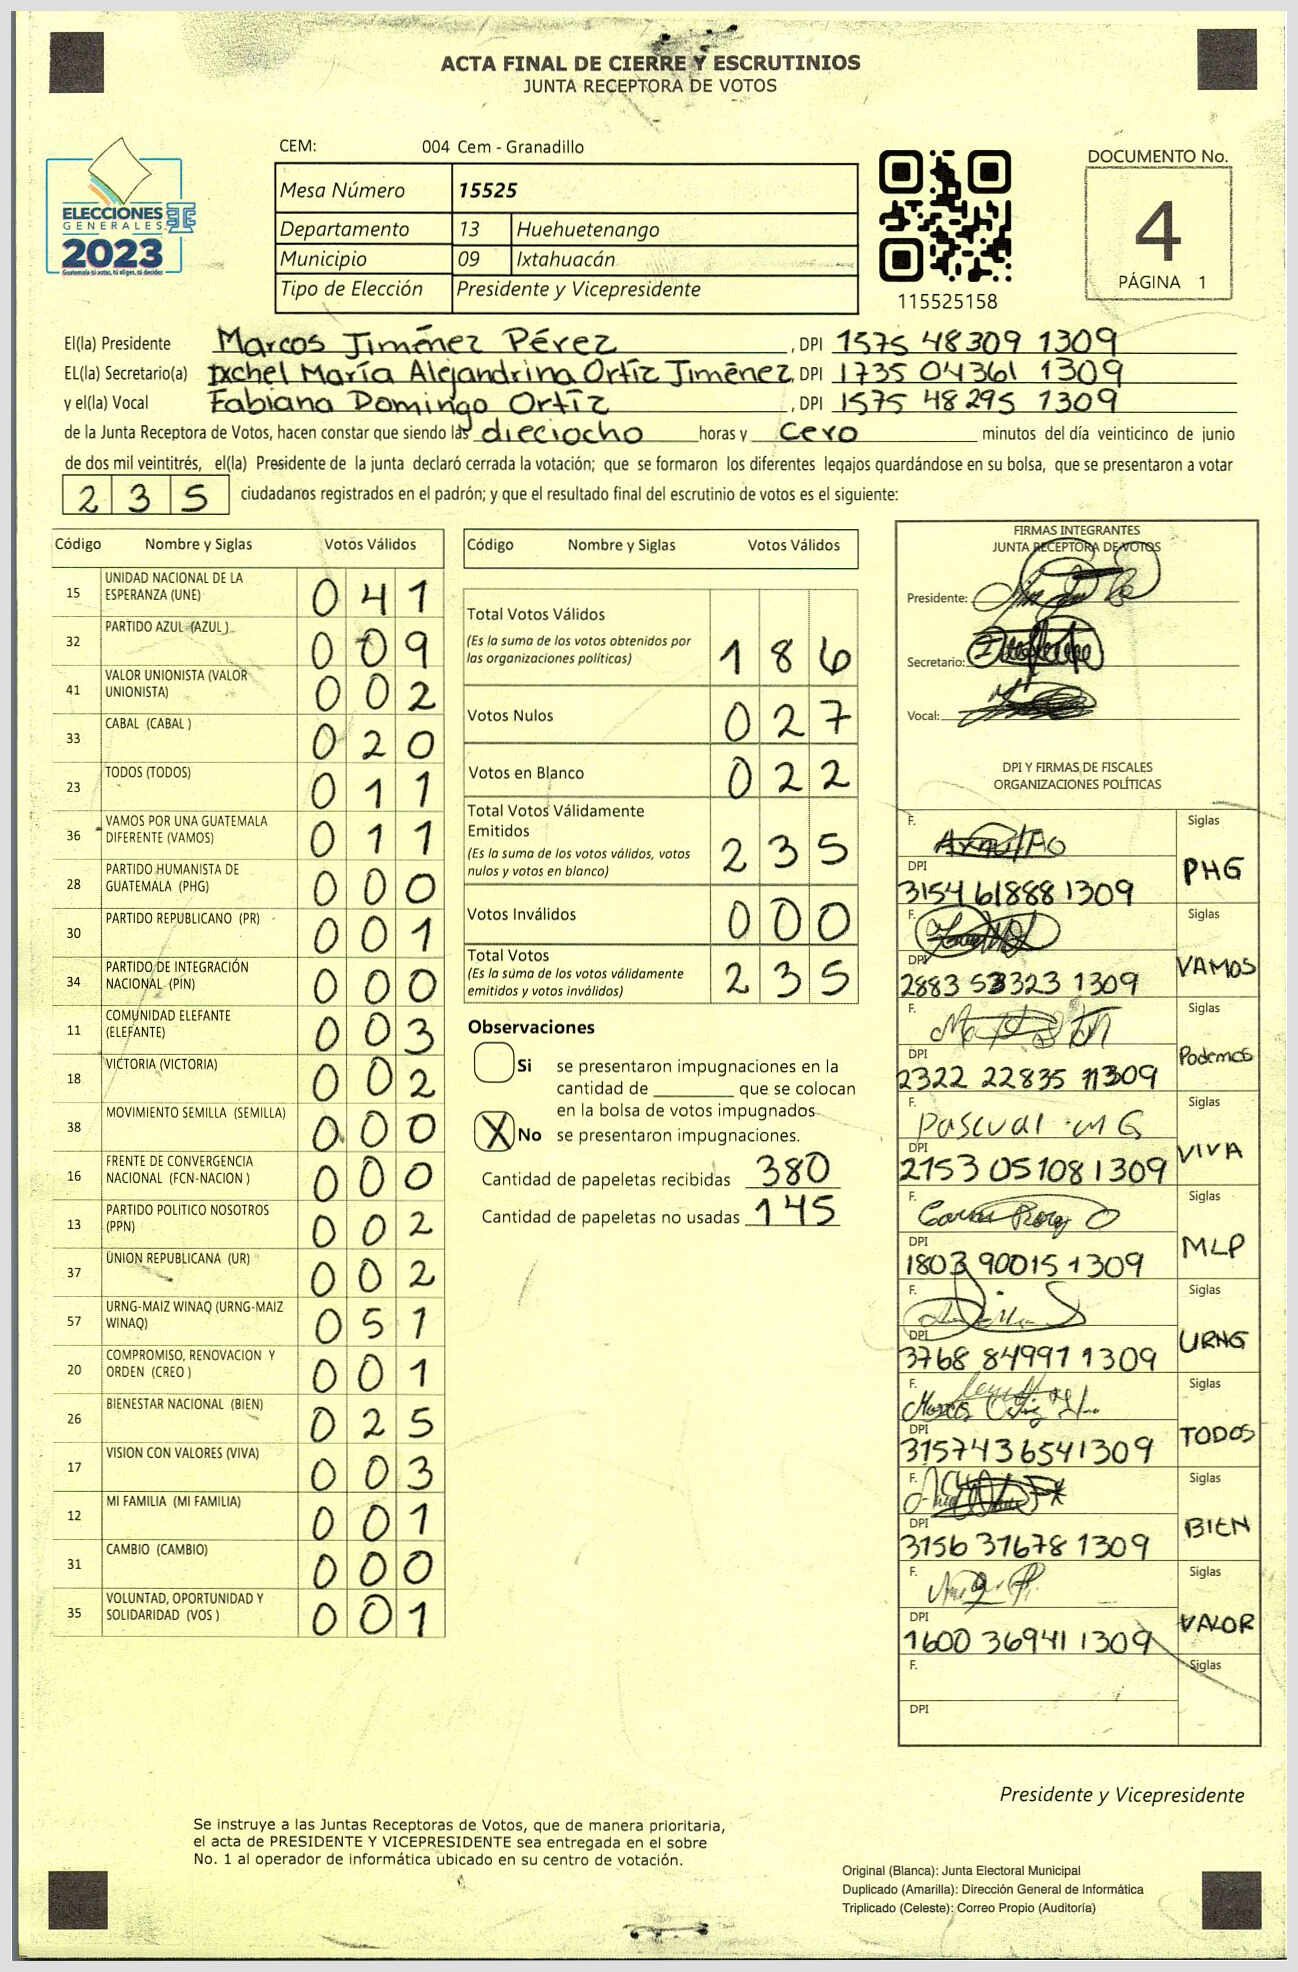 ACTA FINAL DE CIERRE Y ESCRUTINIOS
JUNTA RECEPTORA DE VOTOS
ELECCIONES
GENERALES
2023
Guatemala tú votas, tú eliges, tú decides
CEM: 004 Cem - Granadillo
Mesa Número 15525
Departamento 13 Huehuetenango
Municipio 09 Ixtahuacán
Tipo de Elección Presidente y Vicepresidente
115525158
DOCUMENTO No.
4
PÁGINA 1
El(la) Presidente Marcos Jiménez Pérez, DPI 1575 48309 1309
EL(la) Secretario(a) Ixchel María Alejandrina Ortíz Jiménez, DPI 1735 04361 1309
y el(la) Vocal Fabiana Domingo Ortíz, DPI 1575 48295 1309
de la Junta Receptora de Votos, hacen constar que siendo las dieciocho horas y cero minutos del día veinticinco de junio
de dos mil veintitrés, el(la) Presidente de la junta declaró cerrada la votación; que se formaron los diferentes legajos quardándose en su bolsa, que se presentaron a votar
235 ciudadanos registrados en el padrón; y que el resultado final del escrutinio de votos es el siguiente:
Código Nombre y Siglas Votos Válidos
15 UNIDAD NACIONAL DE LA ESPERANZA (UNE) 041
32 PARTIDO AZUL (AZUL ) 009
41 VALOR UNIONISTA (VALOR UNIONISTA) 002
33 CABAL (CABAL ) 020
23 TODOS (TODOS) 011
36 VAMOS POR UNA GUATEMALA DIFERENTE (VAMOS) 011
28 PARTIDO HUMANISTA DE GUATEMALA (PHG) 000
30 PARTIDO REPUBLICANO (PR) 001
34 PARTIDO DE INTEGRACIÓN NACIONAL (PIN) 000
11 COMUNIDAD ELEFANTE (ELEFANTE) 003
18 VICTORIA (VICTORIA) 002
38 MOVIMIENTO SEMILLA (SEMILLA) 000
16 FRENTE DE CONVERGENCIA NACIONAL (FCN-NACION ) 000
13 PARTIDO POLITICO NOSOTROS (PPN) 002
37 UNION REPUBLICANA (UR) 002
57 URNG-MAIZ WINAQ (URNG-MAIZ WINAQ) 051
20 COMPROMISO, RENOVACION Y ORDEN (CREO ) 001
26 BIENESTAR NACIONAL (BIEN) 025
17 VISION CON VALORES (VIVA) 003
12 MI FAMILIA (MI FAMILIA) 001
31 CAMBIO (CAMBIO) 000
35 VOLUNTAD, OPORTUNIDAD Y SOLIDARIDAD (VOS ) 001
Código Nombre y Siglas Votos Válidos
Total Votos Válidos
(Es la suma de los votos obtenidos por
las organizaciones políticas) 186
Votos Nulos 027
Votos en Blanco 022
Total Votos Válidamente
Emitidos
(Es la suma de los votos válidos, votos
nulos y votos en blanco) 235
Votos Inválidos 000
Total Votos
(Es la suma de los votos válidamente
emitidos y votos inválidos) 235
Observaciones
Si se presentaron impugnaciones en la
cantidad de ________ que se colocan
en la bolsa de votos impugnados
X No se presentaron impugnaciones.
Cantidad de papeletas recibidas 380
Cantidad de papeletas no usadas 145
FIRMAS INTEGRANTES
JUNTA RECEPTORA DE VOTOS
Presidente:
Secretario:
Vocal:
DPI Y FIRMAS DE FISCALES
ORGANIZACIONES POLÍTICAS
F. Siglas
DPI PHG
3154 61888 1309
F. Siglas
DPI VAMOS
2883 53323 1309
F. Siglas
DPI Podemos
2322 22835 1309
F. Pascual MG Siglas
DPI VIVA
2153 05108 1309
F. Siglas
DPI MLP
1803 90015 1309
F. Siglas
DPI URNG
3768 84991 1309
F. Marcos Ortiz Siglas
DPI TODOS
3157 43654 1309
F. Siglas
DPI BIEN
3156 31678 1309
F. Siglas
DPI VALOR
1600 36941 1309
F. Siglas
DPI
Presidente y Vicepresidente
Se instruye a las Juntas Receptoras de Votos, que de manera prioritaria,
el acta de PRESIDENTE Y VICEPRESIDENTE sea entregada en el sobre
No. 1 al operador de informática ubicado en su centro de votación.
Original (Blanca): Junta Electoral Municipal
Duplicado (Amarilla): Dirección General de Informática
Triplicado (Celeste): Correo Propio (Auditoría)